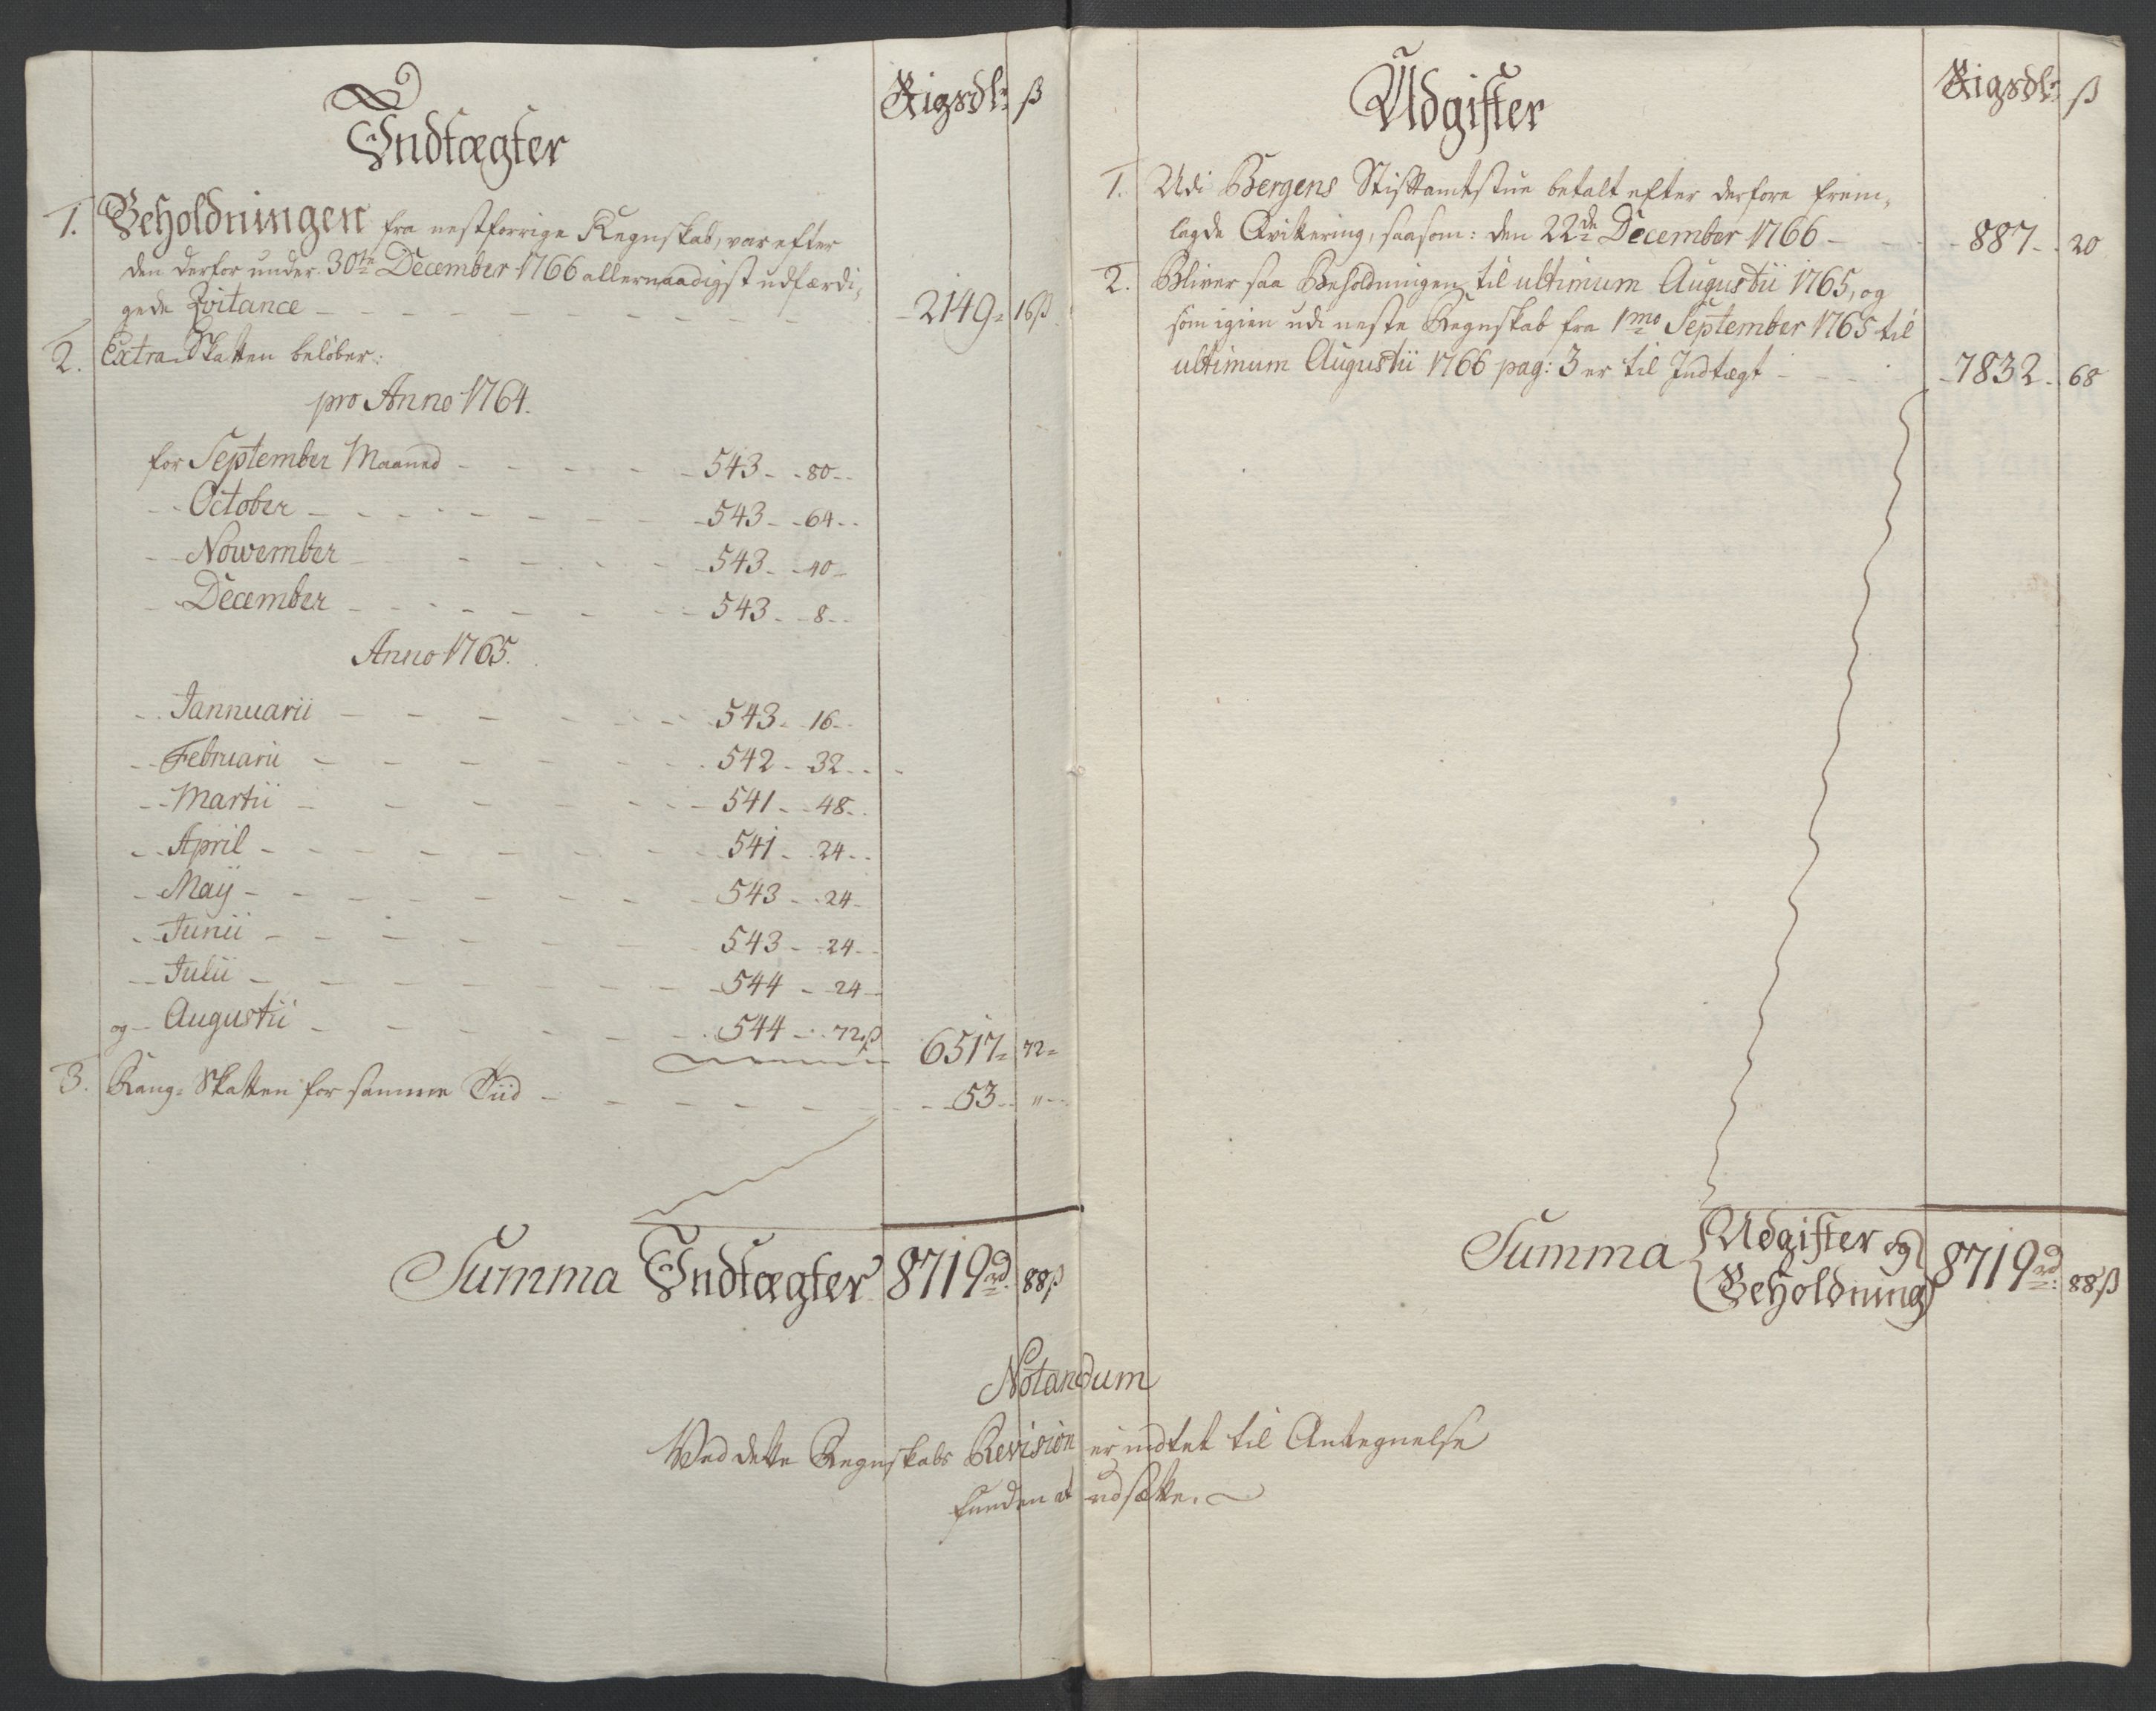 Indtægter
Rigsdlr ß
1. Beholdningen fra nestforrige Regnskab, var efter
den derfor under 30te December 1766 allernaadigst udfærdi-
gede Qvitance - 2149 - 16ß
2. Extra Skatten beløber:
pro Anno 1764.
for September Maaned - 543 - 80
October - 543 - 64
Nowember - 543 - 40
December - 543 - 8
Anno 1765.
Jannuarii - 543 - 16
Februarii - 542 - 32
Martii - 541 - 48
April - 541 - 24
Maij - 543 - 24
Junii - 543 - 24
Julii - 544 - 24
og Augustii - 544 - 72ß 6517 - 72
3. Rang-Skatten for samme Tiid - 53 - "
Summa Indtægter 8719rd 88ß
Udgifter
Rigsdlr ß
1. Udi Bergens Stiftamtstue betalt efter derfore frem-
lagde Qvittering, saasom: den 22de December 1766 - 887 - 20
2. Bliver saa Beholdningen til ultimum Augustii 1765, og
som igien udi neste Regnskab fra 1mo September 1765 til
ultimum Augustii 1766 pag: 3 er til Indtægt - 7832 - 68
Summa Udgifter og
Beholdning 8719rd: 88ß
Notandum
Ved dette Regnskabs Revision er indtet til Antegnelse
funden at udsætte.